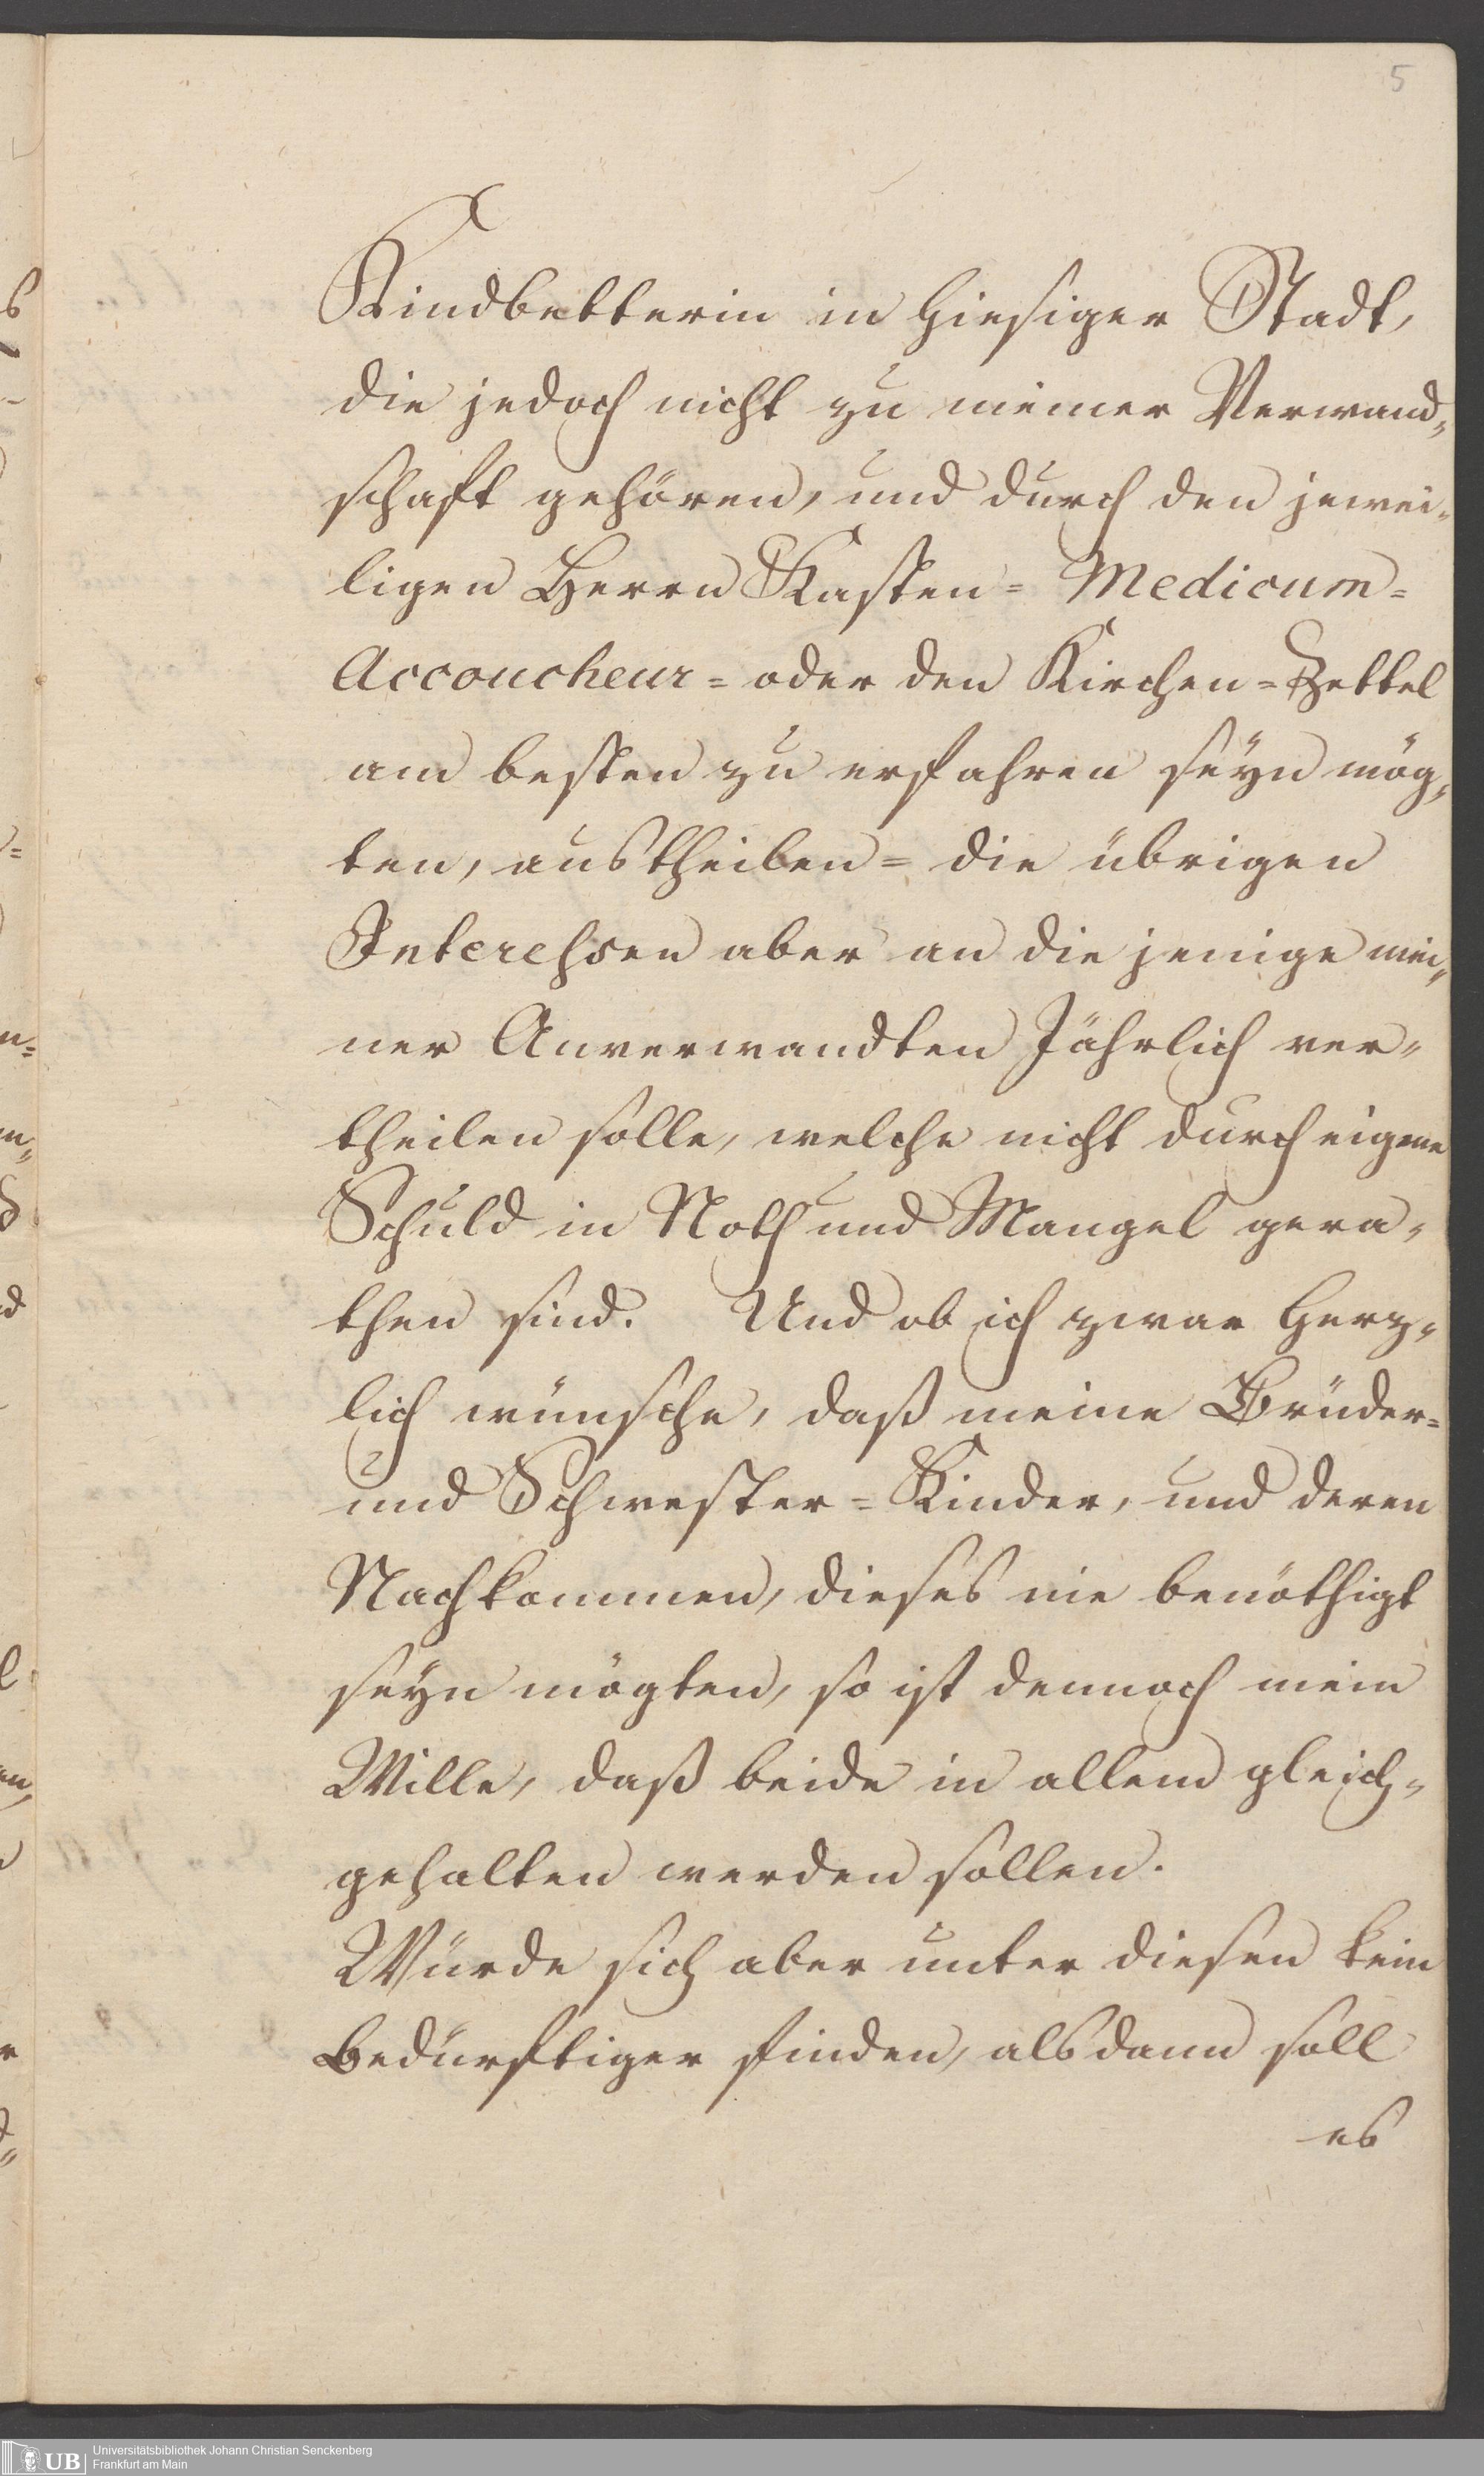 5
Kindbetterin in hiesiger Stadt,
die jedoch nicht zu meiner Verwand„
schaft gehören, und durch den jewei„
ligen Herrn Kasten= Medicum=
Accoucheur= oder den Kirchen=Zettel
am besten zu erfahren seÿn mög„
ten, austheilen= die übrigen
Interehsen aber an die jenige mei„
ner Anverwandten Jährlich ver„
theilen solle, welche nicht durch eigene
Schuld in Noth und Mangel gera„
then sind. Und ob ich zwar herz„
lich wünsche, daß meine Brüder=
und Schwester=Kinder, und deren
Nachkommen, dieses nie benöthigt
seÿn mögten, so ist dennoch mein
Wille, daß beide in allem gleich„
gehalten werden sollen.
Würde sich aber unter diesen kein
bedürftiger finden, alsdann soll
es
UB
Universitätsbibliothek Johann Christian Senckenberg
Frankfurt am Main